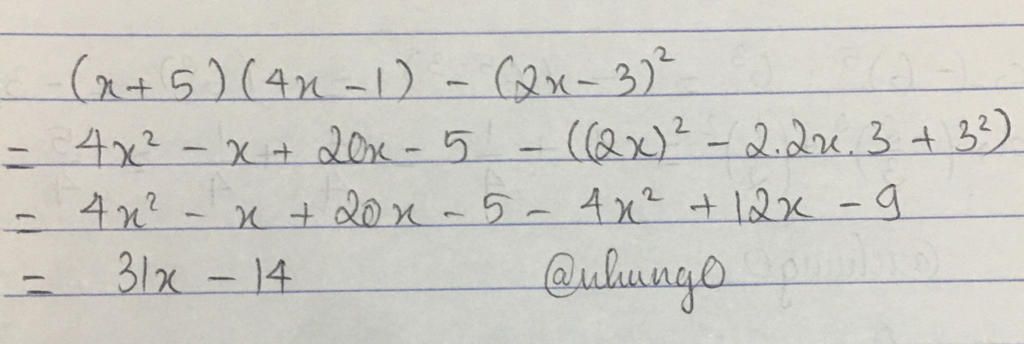 (x+5)(4x-1) - (2x-3)²
= 4x² - x + 20x - 5 - ((2x)² - 2.2x.3 + 3²)
= 4x² - x + 20x - 5 - 4x² + 12x - 9
= 31x - 14 @nhung0